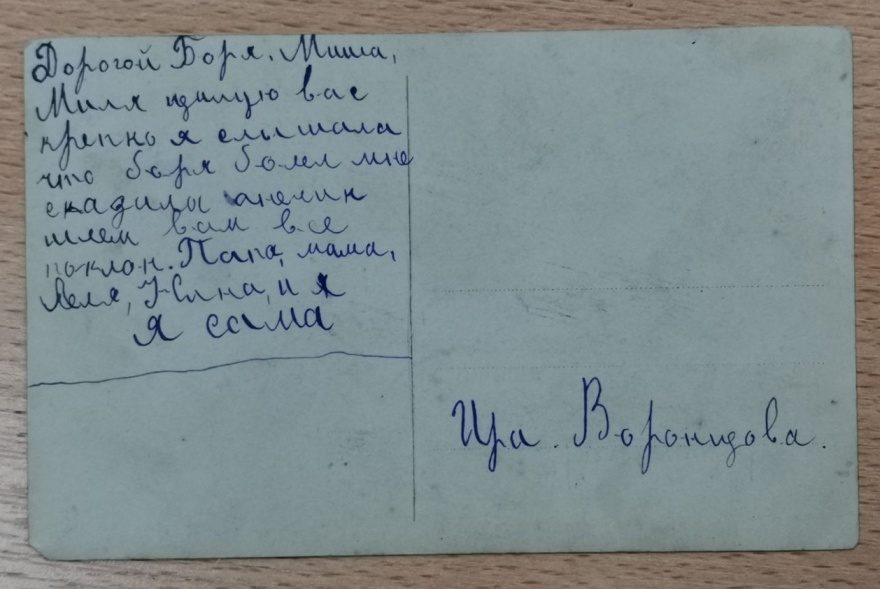 Дорогой Боря. Миша,
Миля цилую вас
крепко я слышала
что боря болел мне
сказали
шлем вам все
поклон. Папа, мама,
Леля, Нина, и я
я сама
Ира. Воронцова.